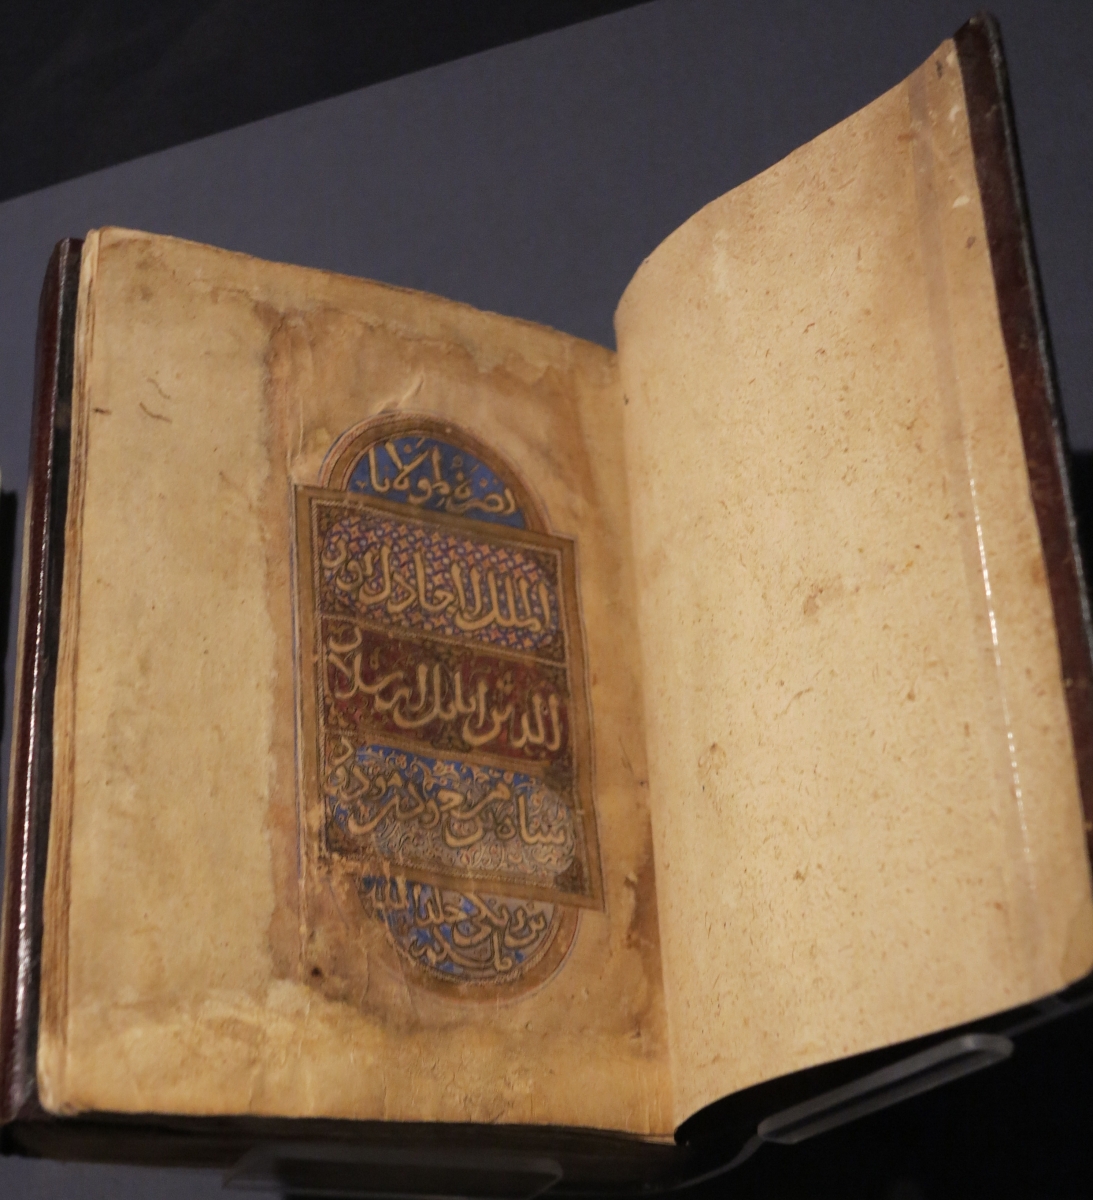 نصرة لمولانا
الملك العادل نور
الدين ارسلان
شاه بن مسعود بن مودود
بن زنكي خلد الله